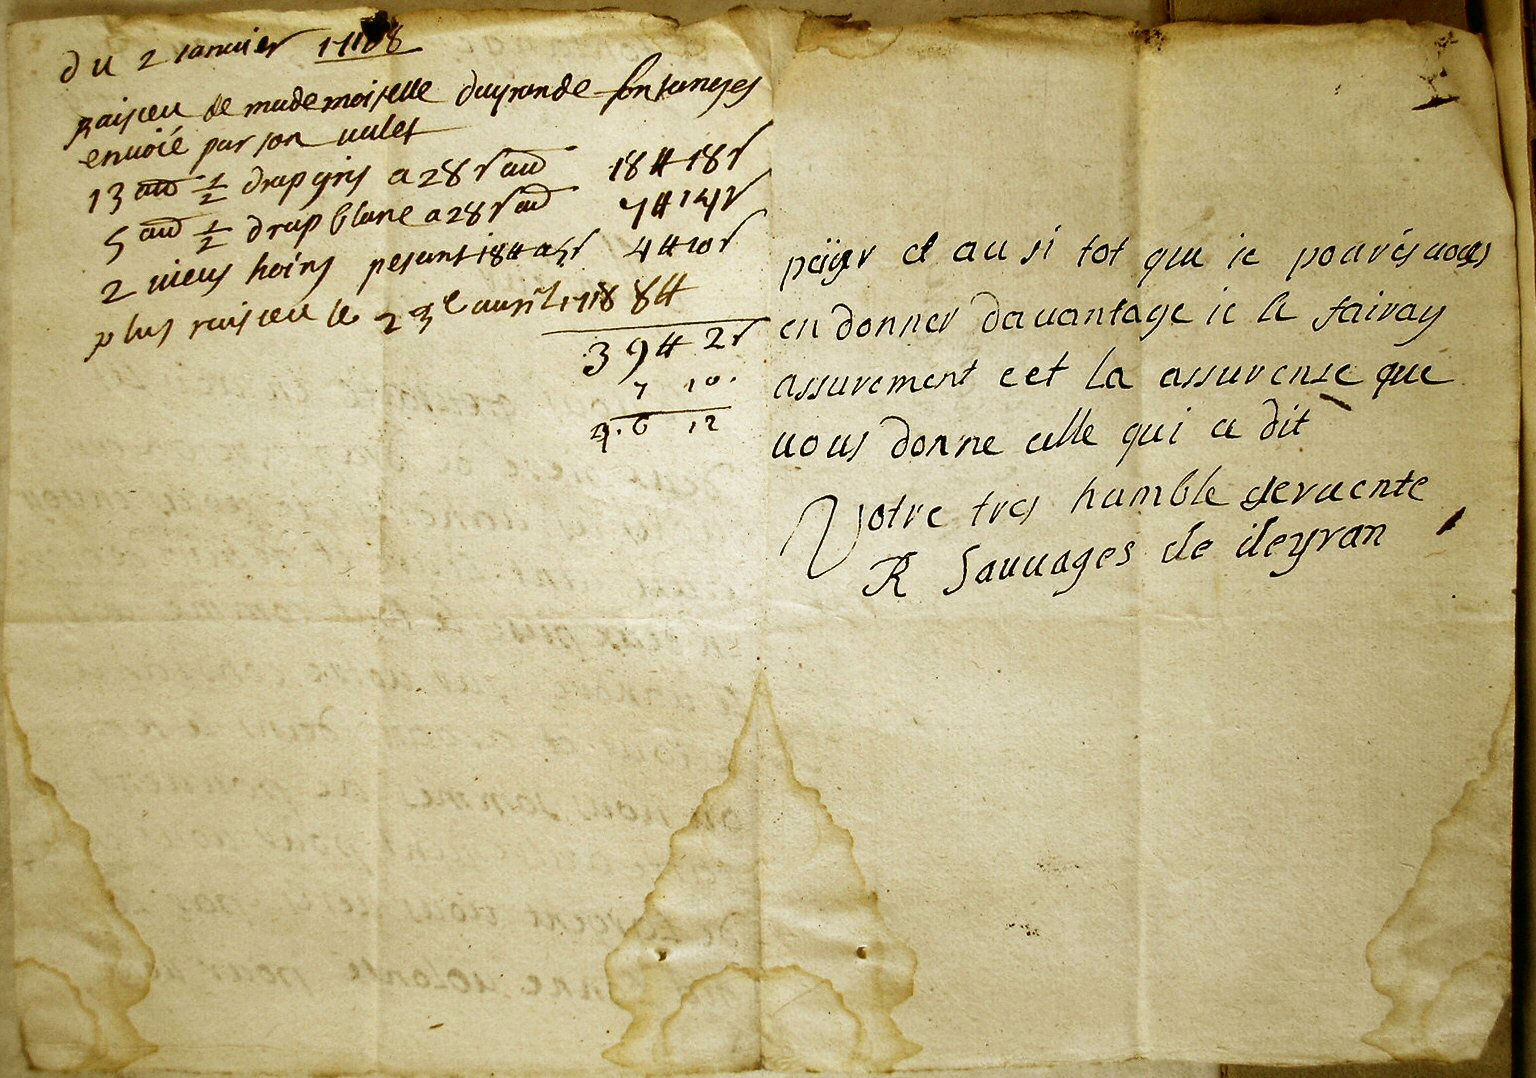 du 2 ianvier 1718
raiseu de mademoiselle duyrande fontanges
envoié par son valet
13 au 1/2 drap gris a 28 s au 18 ₶ 18 s
5 au 1/2 drap blanc a 28 s au 7 ₶ 14 s
2 vieus pesant 18 ₶ a 5 s 4 ₶ 10 s
plus raiseu le 23e avril 1718 8 ₶
39 ₶ 2 s
7 10.
46 12
païyer et au si tot que ie pourés vous
en donner davantage ie le fairay
assurement cet la assurense que
vous donne celle qui a dit
Votre tres humble servente
R Sauvages de deyran